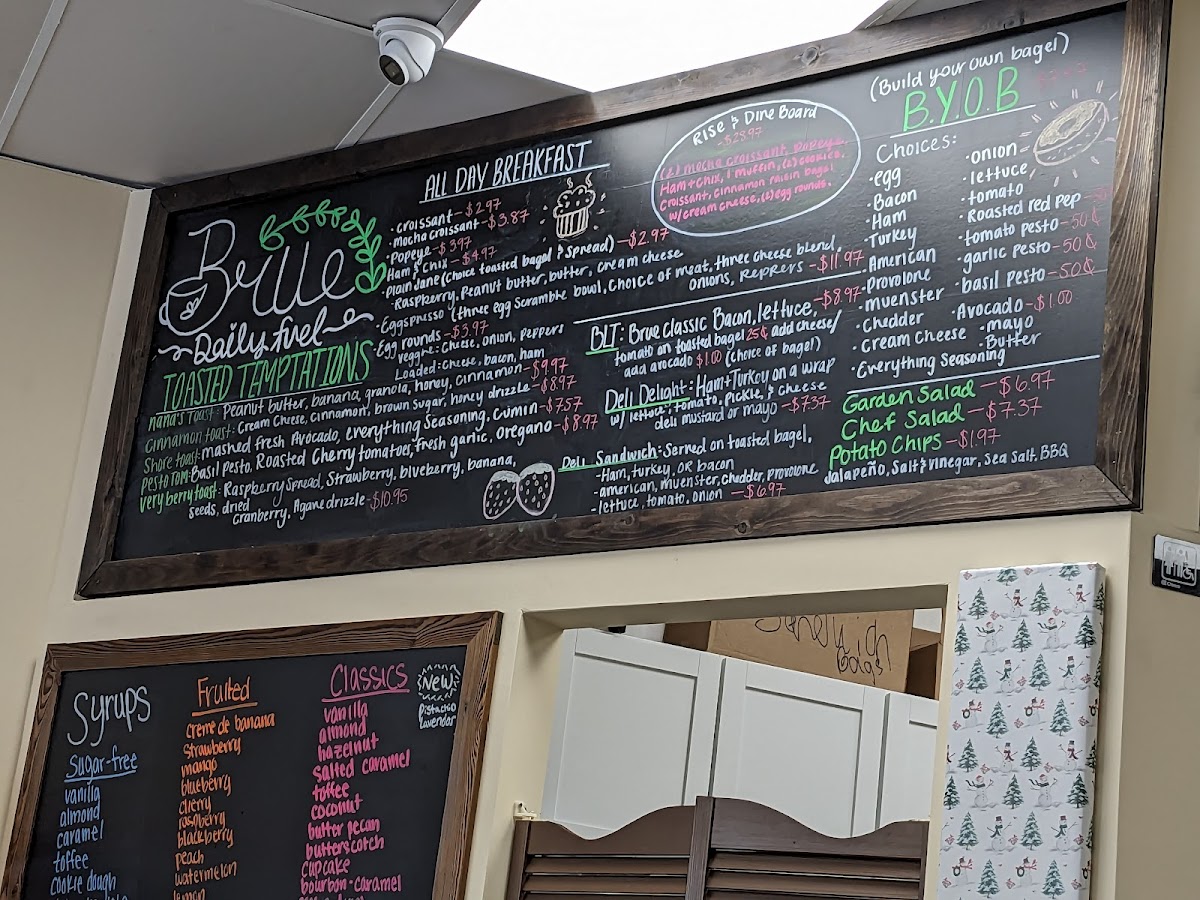 Brue
Daily fuel
ALL DAY BREAKFAST
· croissant - $2.97
· mocha croissant - $3.87
· Popeye - $3.97
· Ham & Chix - $4.97
· Plain Jane (Choice toasted bagel & Spread) - $2.97
- Raspberry, Peanut butter, butter, cream cheese
· Eggspresso (three egg Scramble bowl, Choice of meat, three cheese blend,
onions, Peppers - $11.97
· Egg rounds - $3.97
veggie: Cheese, onion, Peppers
Loaded: Cheese, bacon, ham
TOASTED TEMPTATIONS
nana's toast: Peanut butter, banana, granola, honey, cinnamon - $9.97
Cinnamon toast: Cream Cheese, cinnamon, brown sugar, honey drizzle - $8.97
Shore toast: mashed fresh Avocado, everything Seasoning, Cumin - $7.57
Pesto Tom: Basil pesto, Roasted Cherry tomatoes, fresh garlic, Oregano - $8.97
very berry toast: Raspberry Spread, Strawberry, blueberry, banana,
seeds, dried
cranberry, Agave drizzle - $10.95
Rise & Dine Board
- $28.97
(2) mocha croissant, Popeye,
Ham + Chix, 1 muffin, (2) cookies,
Croissant, cinnamon raisin bagel
w/ cream cheese, (2) egg rounds.
BLT: Brue classic Bacon, lettuce, - $8.97
tomato on toasted bagel 25¢ add cheese/
add avocado $1.00 (choice of bagel)
Deli Delight: Ham + Turkey on a wrap
w/ lettuce, tomato, pickle, & cheese
deli mustard or mayo - $7.37
Deli Sandwich: Served on toasted bagel,
- Ham, turkey, OR bacon
- american, muenster, cheddar, provolone
- lettuce, tomato, onion - $6.97
(Build your own bagel)
B.Y.O.B
Choices:
· egg
· Bacon
· Ham
· Turkey
· American
· Provolone
· muenster
· Chedder
· Cream Cheese
· Everything Seasoning
· onion
· lettuce
· tomato
· Roasted red pep
· tomato pesto - 50¢
· garlic pesto - 50¢
· basil pesto - 50¢
· Avocado - $1.00
· mayo
· Butter
Garden Salad - $6.97
Chef Salad - $7.37
Potato Chips - $1.97
Jalapeño, Salt & vinegar, Sea Salt, BBQ
Syrups
Sugar-free
vanilla
almond
caramel
toffee
cookie dough
Fruited
creme de banana
strawberry
mango
blueberry
cherry
raspberry
blackberry
peach
watermelon
lemon
Classics
vanilla
almond
hazelnut
salted caramel
toffee
coconut
butter pecan
butterscotch
cupcake
bourbon-caramel
NEW:
Pistachio
Lavender
Sandwich
bags